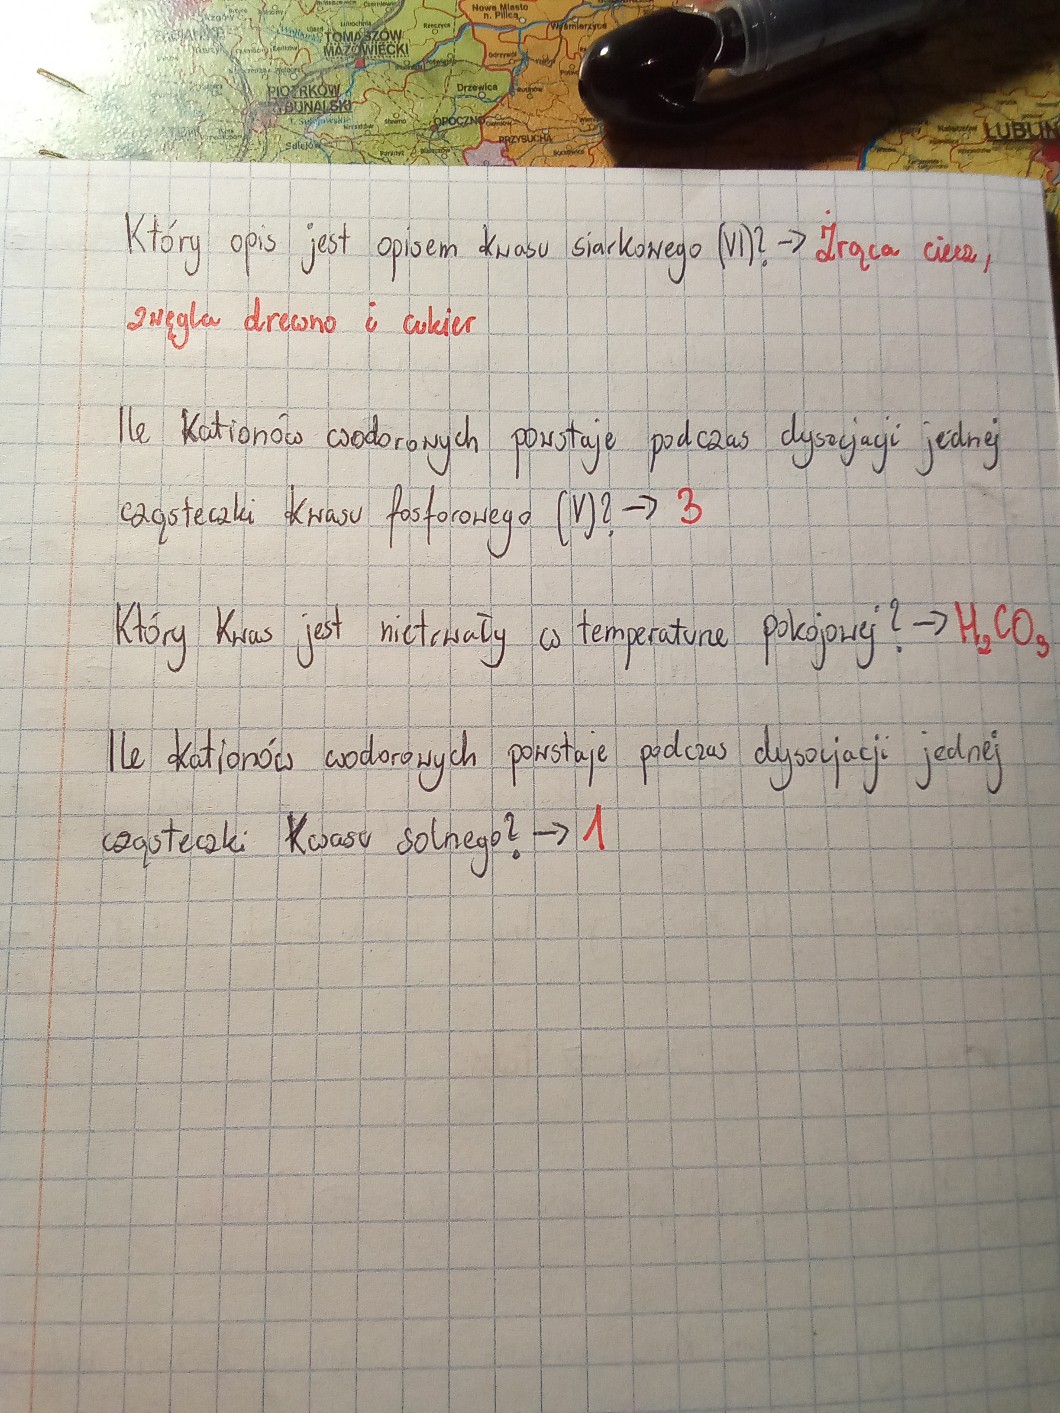 Nowa Miasto
n. Pilicą
TOMASZÓW
MAZOWIECKI
Drzewica
OPOCZNO
PRZYSUCHA
Sulejów
LUBLIN
Który opis jest opisem kwasu siarkowego (VI)? -> Żrąca ciecz,
zwęgla drewno i cukier
Ile kationów wodorowych powstaje podczas dysocjacji jednej
cząsteczki kwasu fosforowego (V)? -> 3
Który kwas jest nietrwały w temperaturze pokojowej? -> H₂CO₃
Ile kationów wodorowych powstaje podczas dysocjacji jednej
cząsteczki kwasu solnego? -> 1